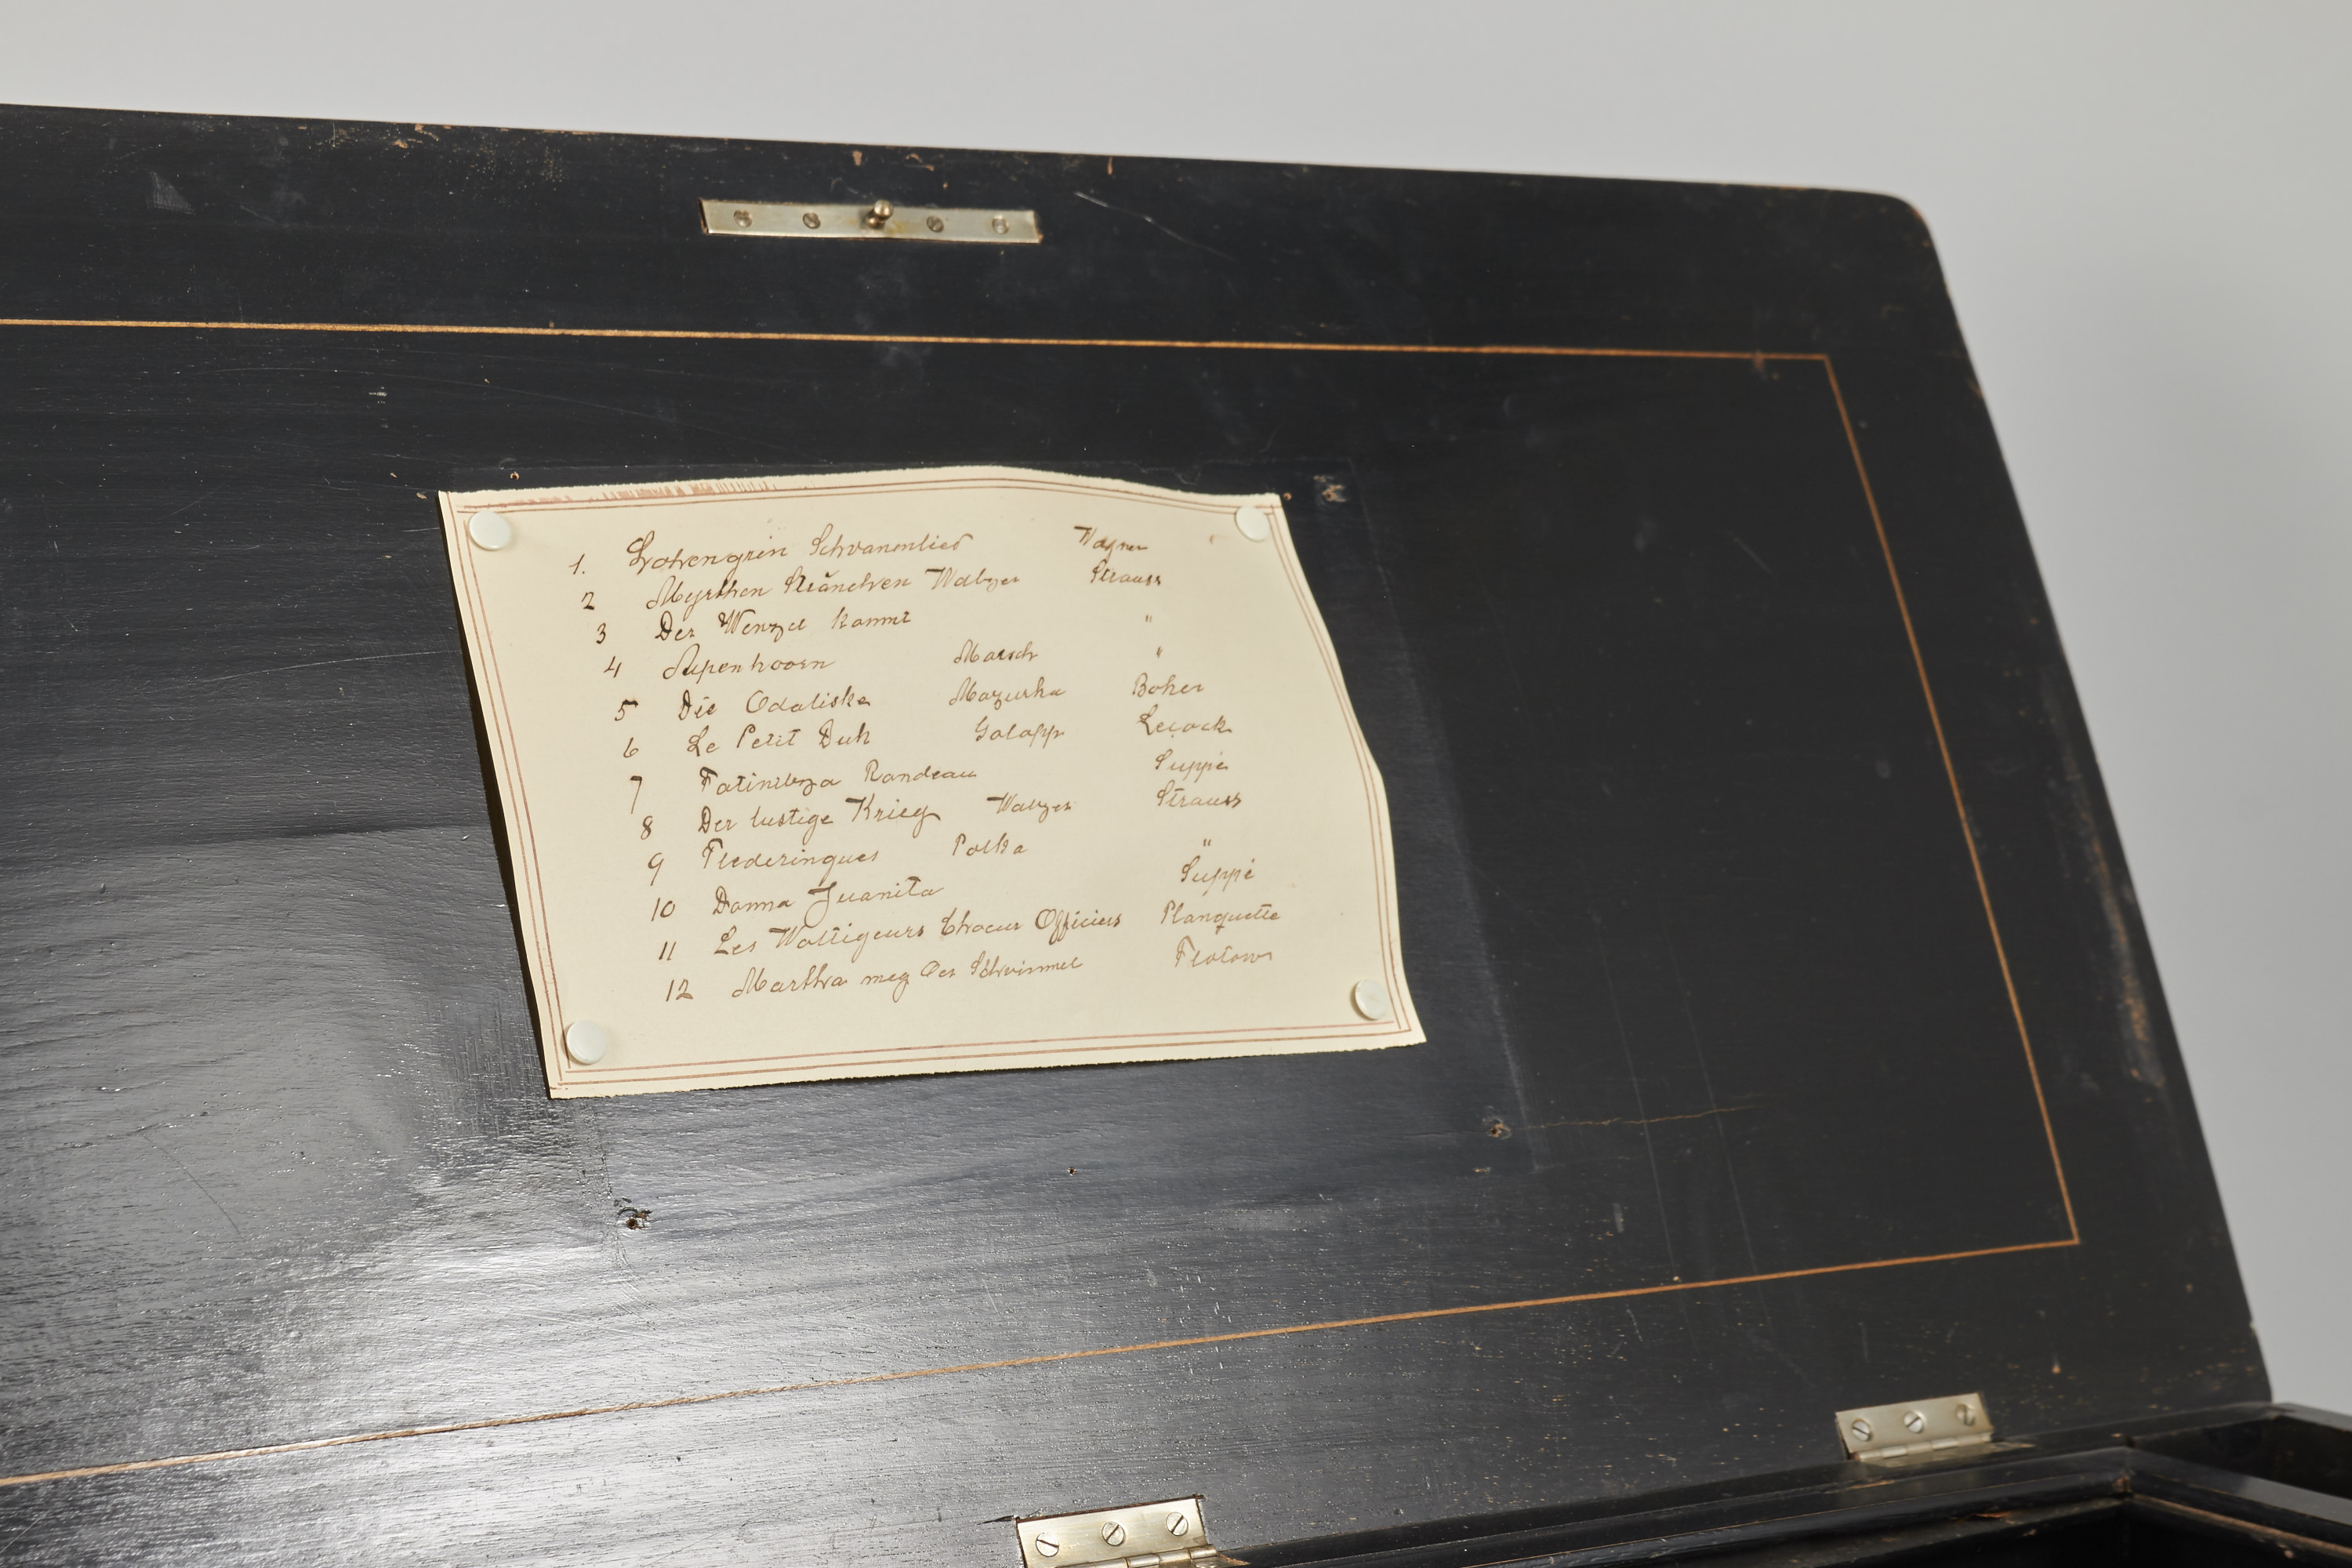 1. Lohengrin Schvanenlied Wagner
2 Myrthen Kränchen Walzer Strauss
3 Der Wenzel kommt "
4 Alpenhoorn Marsch "
5 Die Odaliske Mazurka Boher
6 Le Petit Duk Galopp Lecock
7 Fatinitza Rondeau Suppé
8 Der lustige Krieg Walzer Strauss
9 Polka "
10 Donna Juanita Suppé
11 Les Woltigeurs Choeur Officiers Planquette
12 Martha meg Der Schvimmel Flotow